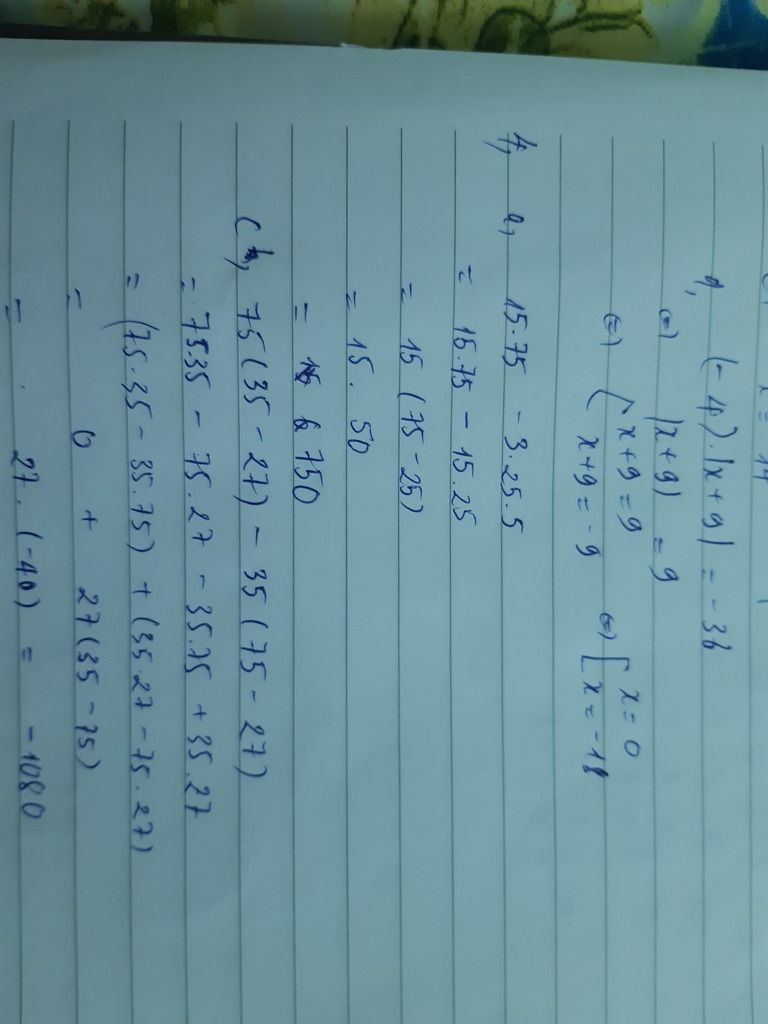 x = 14
(-4).|x+9| = -36
(=) |x+9| = 9
(=) [ x+9 = 9 (=) [ x = 0
x+9 = -9 x = -18
4, a, 15.75 - 3.25.5
= 15.75 - 15.25
= 15 (75-25)
= 15. 50
= 750
75(35-27) - 35(75-27)
= 75.35 - 75.27 - 35.75 + 35.27
= (75.35 - 35.75) + (35.27 - 75.27)
= 0 + 27(35-75)
= 27.(-40) = -1080